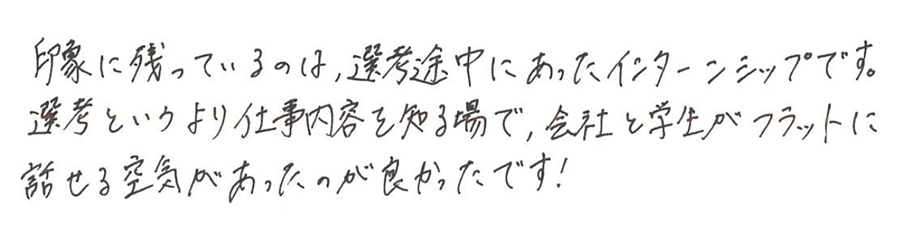 印象に残っているのは,選考途中にあったインターンシップです。
選考というより仕事内容を知る場で,会社と学生がフラットに
話せる空気があったのが良かったです!